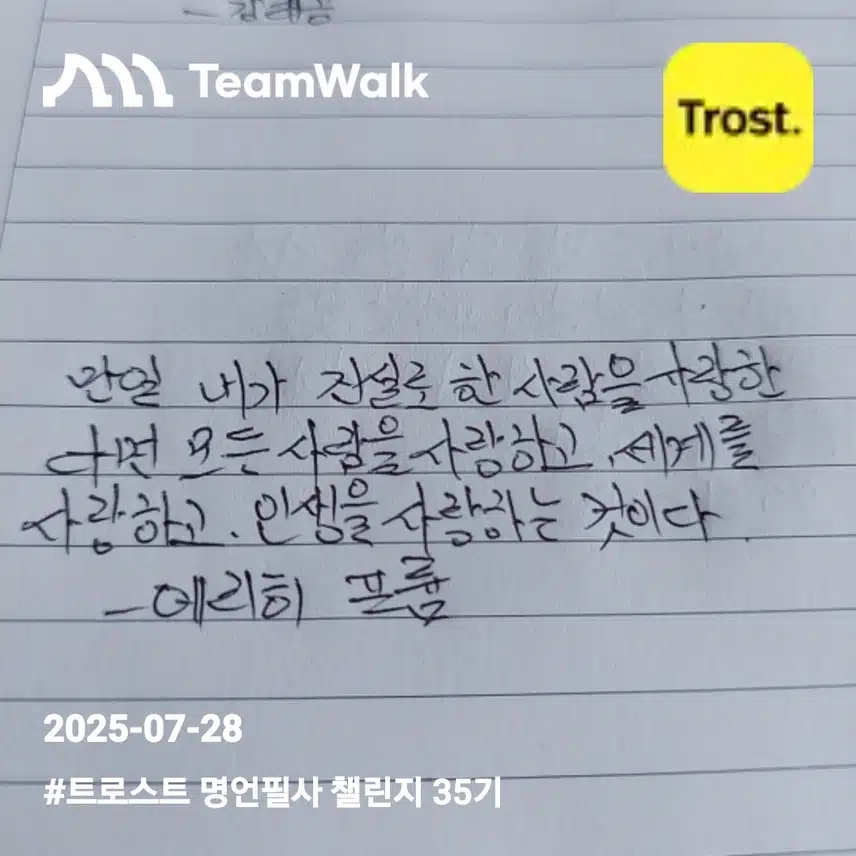 TeamWalk
Trost.
만일 내가 진실로 한 사람을 사랑한
다면 모든 사람을 사랑하고, 세계를
사랑하고, 인생을 사랑하는 것이다.
- 에리히 프롬
2025-07-28
#트로스트 명언필사 챌린지 35기